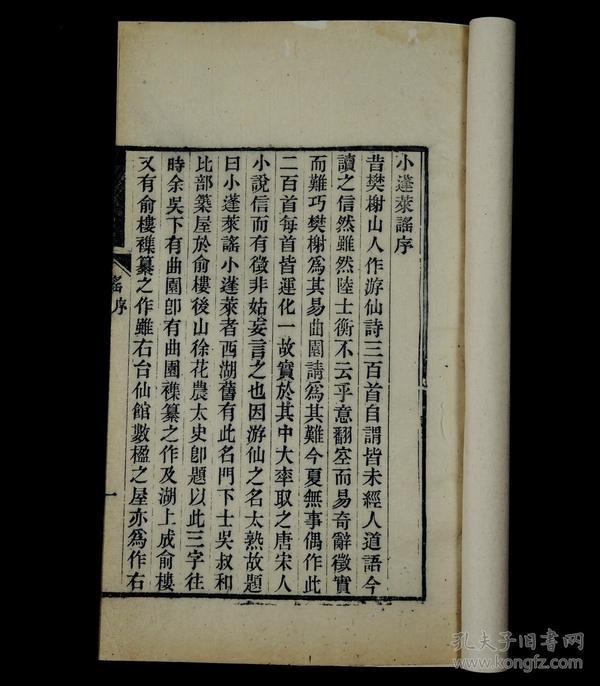 小蓬萊謠序
昔樊榭山人作游仙詩三百首自謂皆未經人道語今
讀之信然雖然陸士衡不云乎意翻空而易奇辭徵實
而難巧樊榭爲其易曲園請爲其難今夏無事偶作此
二百首每首皆運化一故實於其中大率取之唐宋人
小說信而有徵非姑妄言之也因游仙之名太熟故題
曰小蓬萊謠小蓬萊者西湖舊有此名門下士吳叔和
比部築屋於俞樓後山徐花農太史卽題以此三字往
時余吳下有曲園卽有曲園襍纂之作及湖上成俞樓
又有俞樓襍纂之作雖右台仙館數楹之屋亦爲作右
謠序
一
孔夫子旧书网
www.kongfz.com